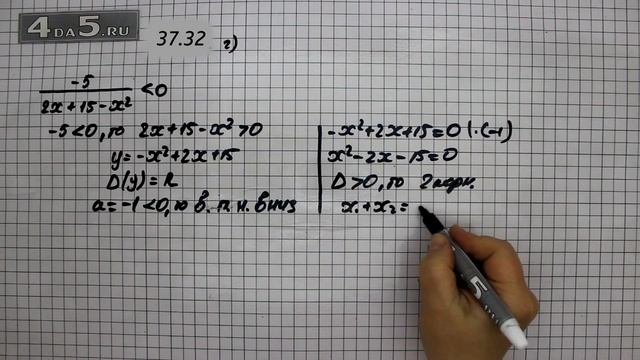 4DA5.RU
37.32 г)
-5/(2x+15-x²) < 0
-5<0, то 2x+15-x²>0
y=-x²+2x+15
D(y)=R
a=-1<0, то в. п. н. вниз
-x²+2x+15=0 |·(-1)
x²-2x-15=0
D>0, то 2 корн.
x₁+x₂=
5